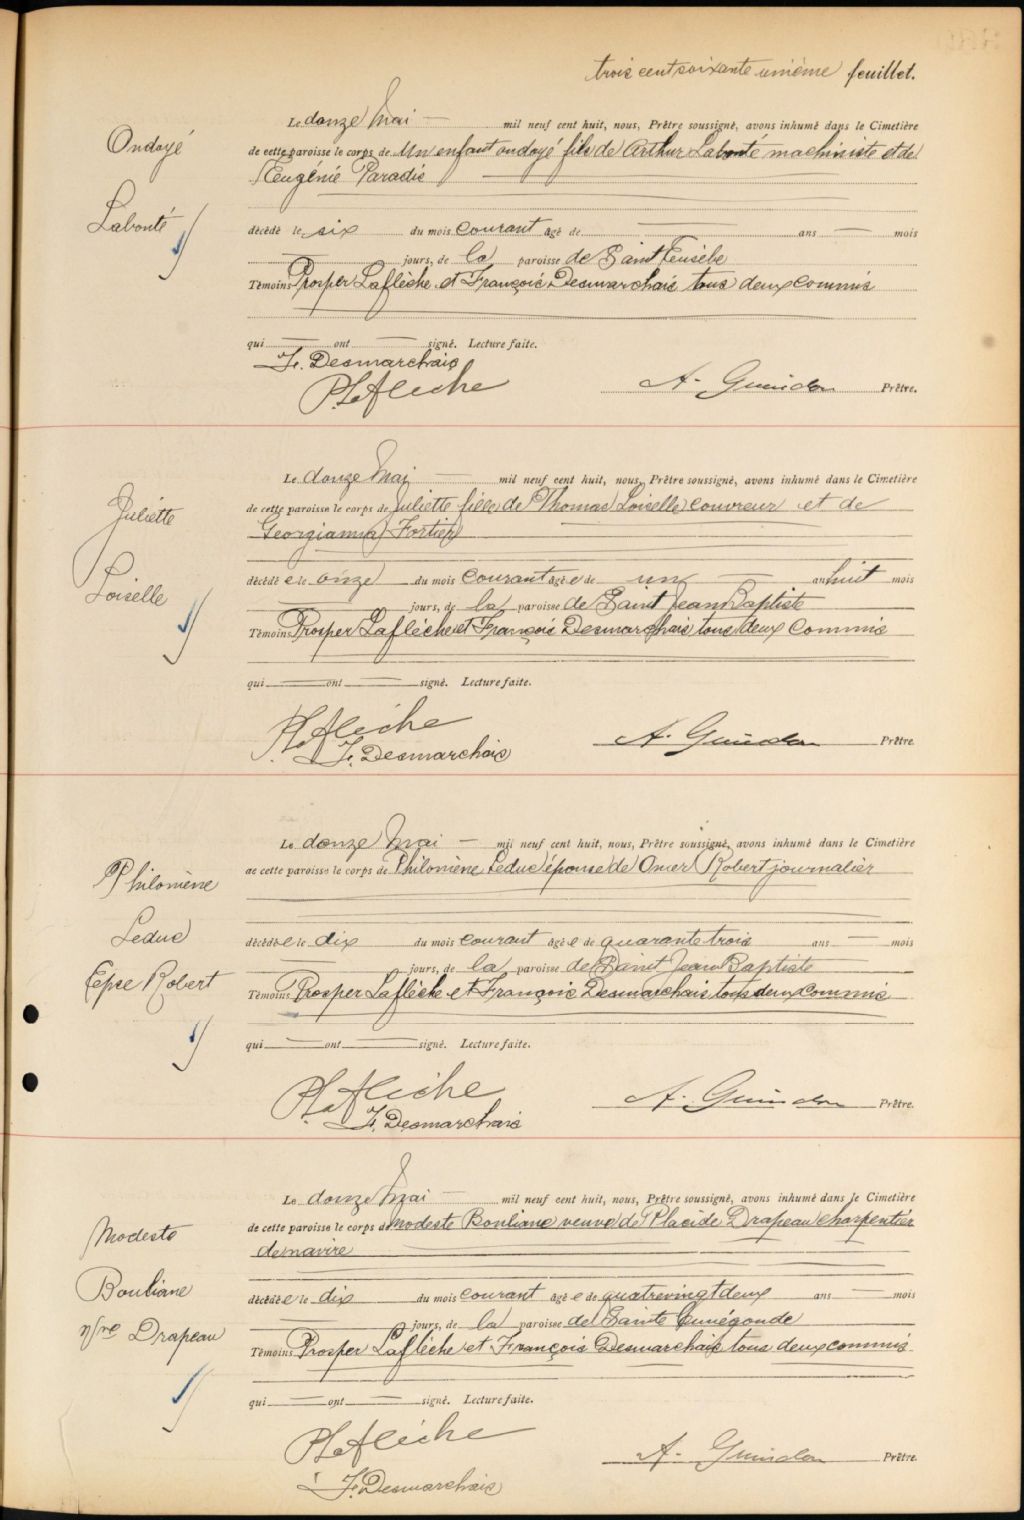 trois cent soixante unième feuillet.
Ondoyé
Labonté
Le douze Mai — mil neuf cent huit, nous, Prêtre soussigné, avons inhumé dans le Cimetière
de cette paroisse le corps de Un enfant ondoyé fils de Arthur Labonté machiniste et de
Eugénie Paradis
décédé le six du mois courant âgé de — ans — mois
— jours, de la paroisse de Saint Eusèbe
Témoins Prosper Laflèche et François Desmarchais tous deux commis
qui — ont — signé. Lecture faite.
F. Desmarchais
P. Laflèche
A. Guindon Prêtre.
Juliette
Loiselle
Le douze Mai — mil neuf cent huit, nous, Prêtre soussigné, avons inhumé dans le Cimetière
de cette paroisse le corps de Juliette fille de Thomas Loiselle couvreur et de
Georgianna Fortier
décédée le onze du mois courant âgée de un — an huit mois
— jours, de la paroisse de Saint Jean Baptiste
Témoins Prosper Laflèche et François Desmarchais tous deux commis
qui — ont — signé. Lecture faite.
P. Laflèche
F. Desmarchais
A. Guindon Prêtre.
Philomène
Leduc
Epse Robert
Le douze Mai — mil neuf cent huit, nous, Prêtre soussigné, avons inhumé dans le Cimetière
de cette paroisse le corps de Philomène Leduc épouse de Omer Robert journalier
décédée le dix du mois courant âgée de quarante trois ans — mois
— jours, de la paroisse de Saint Jean Baptiste
Témoins Prosper Laflèche et François Desmarchais tous deux commis
qui — ont — signé. Lecture faite.
P. Laflèche
F. Desmarchais
A. Guindon Prêtre.
Modeste
Bouliane
Vve Drapeau
Le douze Mai — mil neuf cent huit, nous, Prêtre soussigné, avons inhumé dans le Cimetière
de cette paroisse le corps de Modeste Bouliane veuve de Placide Drapeau charpentier
de navire
décédée le dix du mois courant âgée de quatrevingt deux ans — mois
— jours, de la paroisse de Sainte Cunégonde
Témoins Prosper Laflèche et François Desmarchais tous deux commis
qui — ont — signé. Lecture faite.
P. Laflèche
F. Desmarchais
A. Guindon Prêtre.